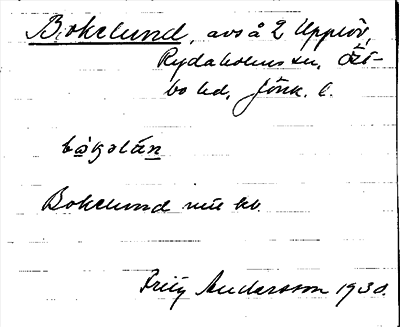 Bokelund, avs å 2 Upplöv,
Rydaholms sn, Öst-
bo hd, Jönk. l.
Bokelund nu kb.
Fritz Andersson 1930.